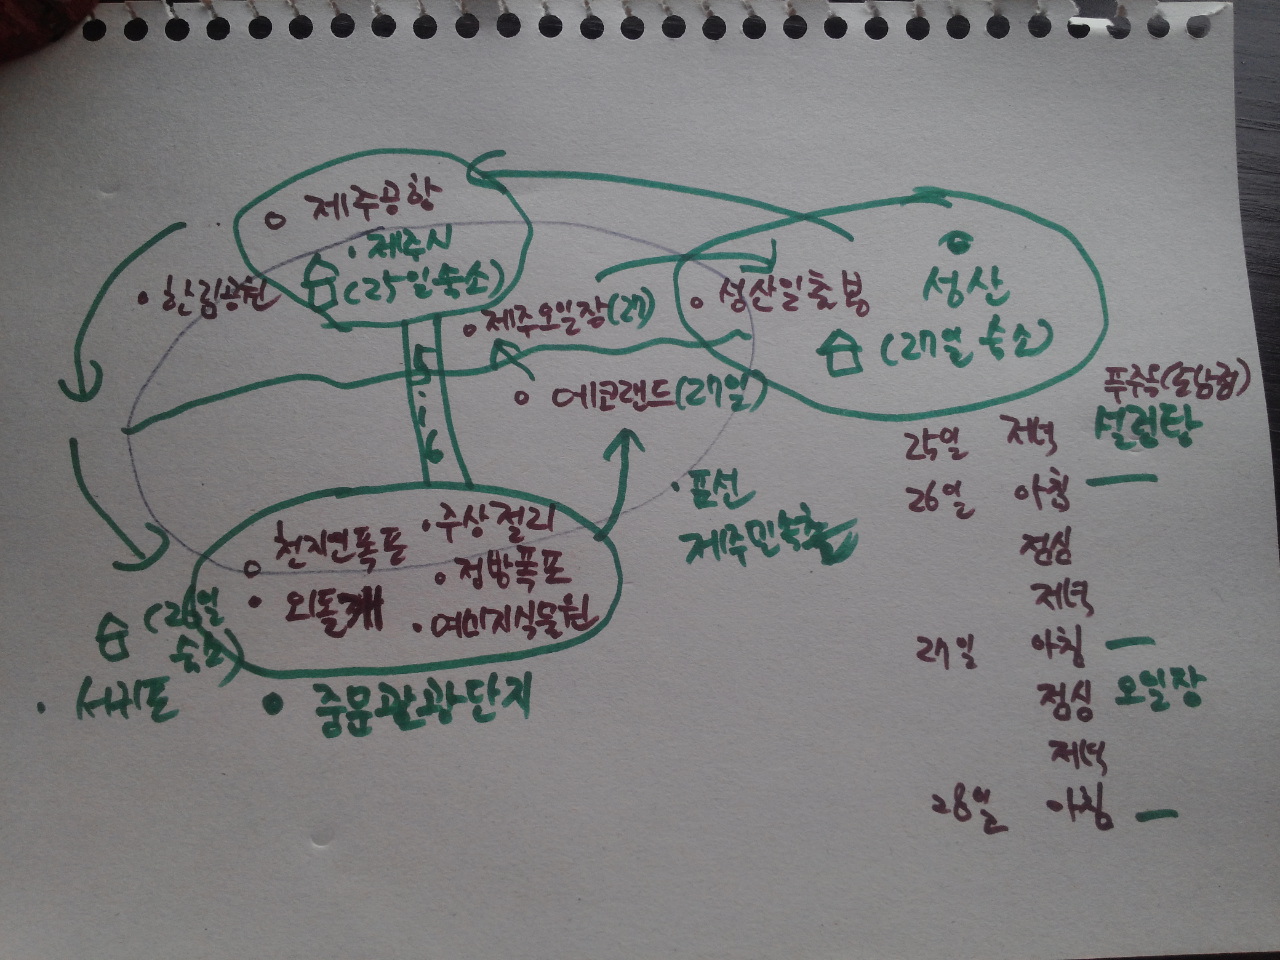 제주공항
제주시
(25일숙소)
한림공원
제주오일장(27)
성산일출봉
성산
(27일 숙소)
에코랜드(27일)
5.16
표선
제주민속촌
천지연폭포
주상절리
외돌개
정방폭포
여미지식물원
(26일
숙소)
서귀포
중문관광단지
푸주옥
25일 저녁 설렁탕
26일 아침 —
점심
저녁
27일 아침 —
점심 오일장
저녁
28일 아침 —